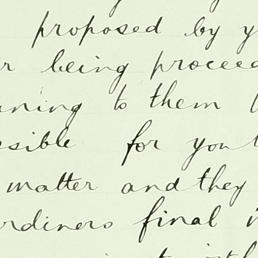 proposed by y
r being proceed
ning to them
ssible for you
matter and they
rdiners final